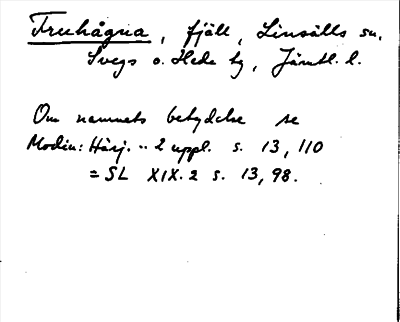 Fruhågna, fjäll, Linsälls sn,
Svegs o. Hede tg, Jämtl. l.
Om namnets betydelse se
Modin: Härj. .. 2 uppl. s. 13, 110
= SL XIX. 2 s. 13, 98.